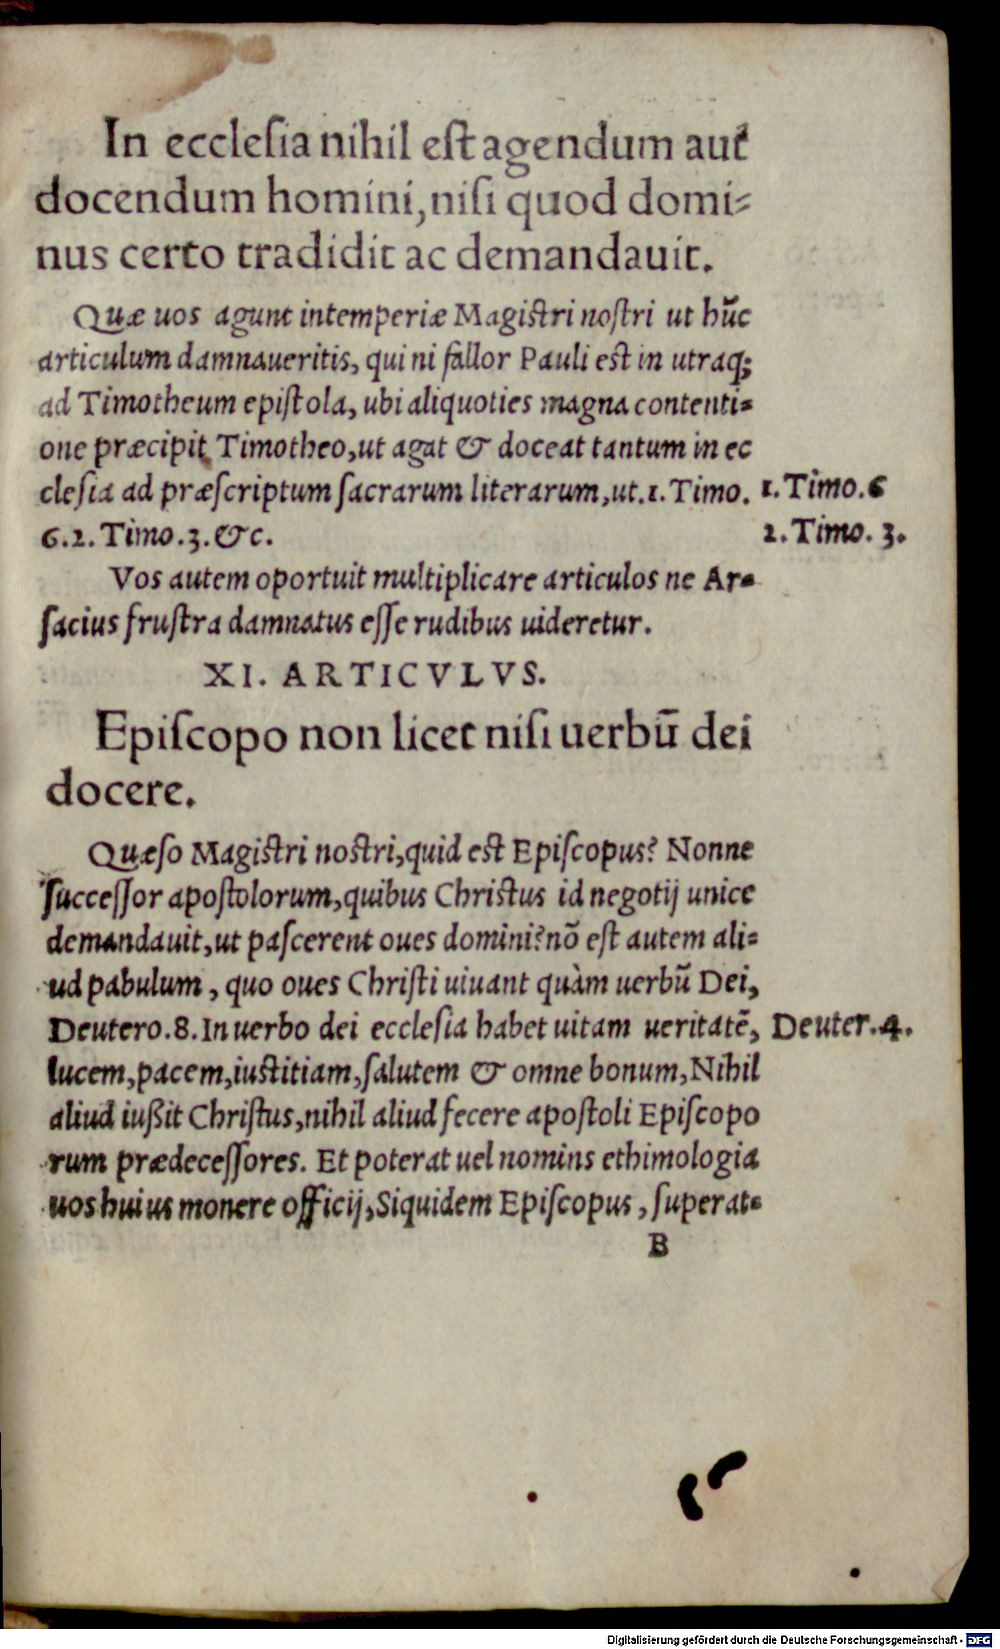 In ecclesia nihil est agendum aut
docendum homini, nisi quod domi-
nus certo tradidit ac demandauit.
Quæ uos agunt intemperiæ Magistri nostri ut hūc
articulum damnaueritis, qui ni fallor Pauli est in utraq;
ad Timotheum epistola, ubi aliquoties magna contenti-
one præcipit Timotheo, ut agat & doceat tantum in ec
clesia ad præscriptum sacrarum literarum, ut.1.Timo. 1.Timo.6
6.2.Timo.3.&c. 2.Timo.3.
Vos autem oportuit multiplicare articulos ne Ar-
sacius frustra damnatus esse rudibus uideretur.
XI. ARTICVLVS.
Episcopo non licet nisi uerbū dei
docere.
Quæso Magistri nostri, quid est Episcopus? Nonne
successor apostolorum, quibus Christus id negotij unice
demandauit, ut pascerent oues domini? nō est autem ali-
ud pabulum, quo oues Christi uiuant quàm uerbū Dei,
Deutero.8. In uerbo dei ecclesia habet uitam ueritatē, Deuter.4.
lucem, pacem, iustitiam, salutem & omne bonum, Nihil
aliud iußit Christus, nihil aliud fecere apostoli Episcopo
rum prædecessores. Et poterat uel nomins ethimologia
uos huius monere officij, Siquidem Episcopus, superat-
B
Digitalisierung gefördert durch die Deutsche Forschungsgemeinschaft - DFG